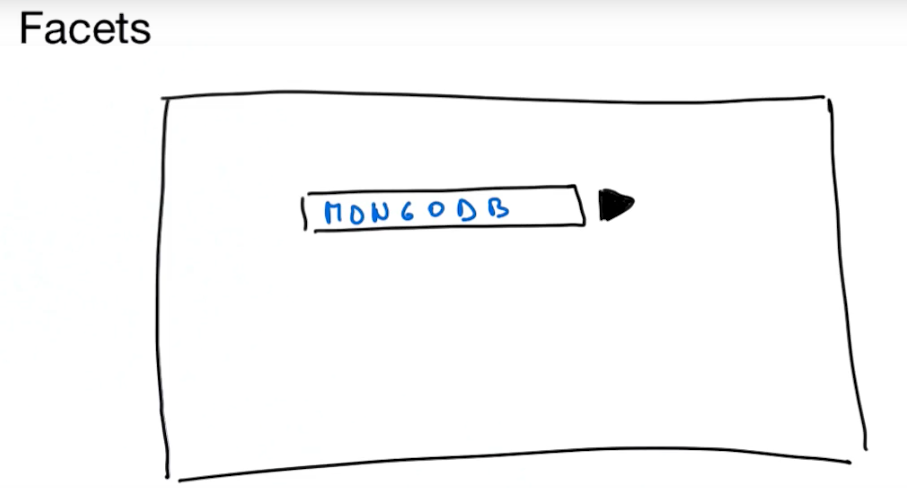 Facets
MONGODB